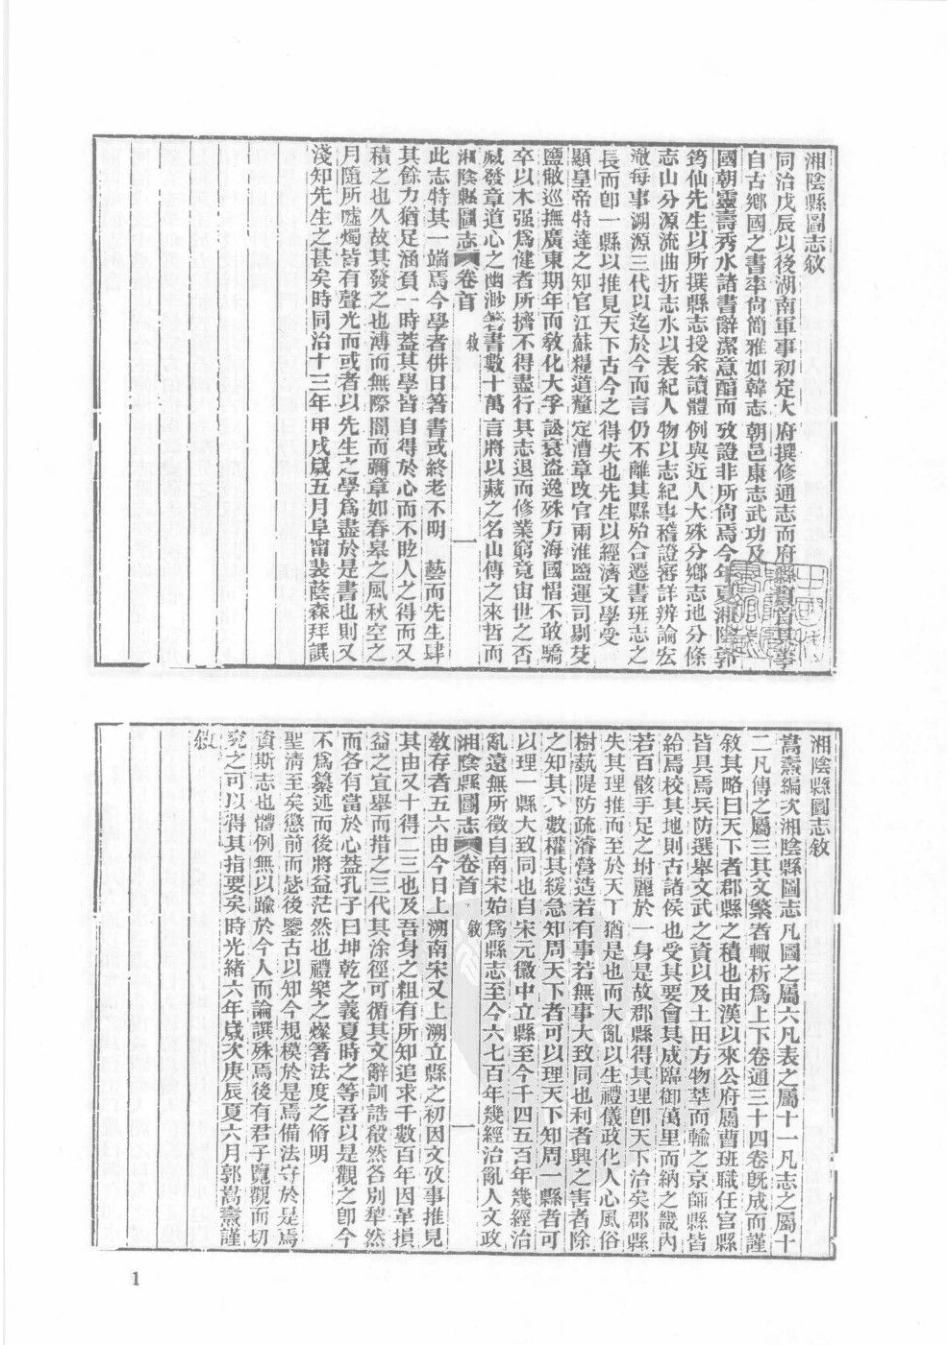 湘陰縣圖志敘
同治戊辰以後湖南軍事初定大府撰修通志而府縣官其事
自古鄉國之書率尙簡雅如韓志朝邑康志武功及
國朝靈壽秀水諸書辭潔意醕而攷證非所尙焉今年夏湘陰郭
筠仙先生以所撰縣志授余讀體例與近人大殊分鄉志地分條
志山分源流曲折志水以表紀人物以志紀事稽證審詳辨論宏
澈每事溯源三代以迄於今而言仍不離其縣殆合遷書班志之
長而卽一縣以推見天下古今之得失也先生以經濟文學受
顯皇帝特達之知官江蘇糧道釐定漕章改官兩淮鹽運司剔芟
鹽敝巡撫廣東期年而敎化大孚訟衰盜逸殊方海國憎不敢驕
卒以木强爲健者所擠不得盡行其志退而修業窮竟宙世之否
臧發章道心之幽渺箸書數十萬言將以藏之名山傳之來哲而
湘陰縣圖志 卷首 敘 一
此志特其一端焉今學者併日箸書或終老不明一藝而先生肆
其餘力猶足涵負一時蓋其學皆自得於心而不眩人之得而又
積之也久故其發之也溥而無際闇而彌章如春皋之風秋空之
月隨所噓燭皆有聲光而或者以先生之學爲盡於是書也則又
淺知先生之甚矣時同治十三年甲戌歲五月阜甯裴蔭森拜譔
湘陰縣圖志敘
嵩燾編次湘陰縣圖志凡圖之屬六凡表之屬十一凡志之屬十
二凡傳之屬三其文繁者輒析爲上下卷通三十四卷旣成而謹
敘其略曰天下者郡縣之積也由漢以來公府屬曹班職任官縣
皆具焉兵防選舉文武之資以及土田方物萃而輸之京師縣皆
給焉校其地則古諸侯也受其要會其成臨御萬里而納之畿內
若百骸手足之坿麗於一身是故郡縣得其理卽天下治矣郡縣
失其理推而至於天下猶是也而大亂以生禮儀政化人心風俗
樹蓺隄防疏濬營造若有事若無事大致同也利者興之害者除
之知其人數權其緩急知周天下者可以理天下知周一縣者可
以理一縣大致同也自宋元徽中立縣至今千四五百年幾經治
亂遠無所徵自南宋始爲縣志至今六七百年幾經治亂人文政
湘陰縣圖志 卷首 敘 一
敎存者五六由今日上溯南宋又上溯立縣之初因文攷事推見
其由又十得二三也及吾身之粗有所知追求千數百年因革損
益之宜舉而措之三代其涂徑可循其文辭訓誥殽然各別犂然
而各有當於心蓋孔子曰坤乾之義夏時之等吾以是觀之卽今
不爲纂述而後將益茫然也禮樂之燦箸法度之脩明
聖清至矣懲前而毖後鑒古以知今規模於是焉備法守於是焉
資斯志也體例無以踰於今人而論譔殊焉後有君子覽觀而切
究之可以得其指要矣時光緖六年歲次庚辰夏六月郭嵩燾謹
敘
1